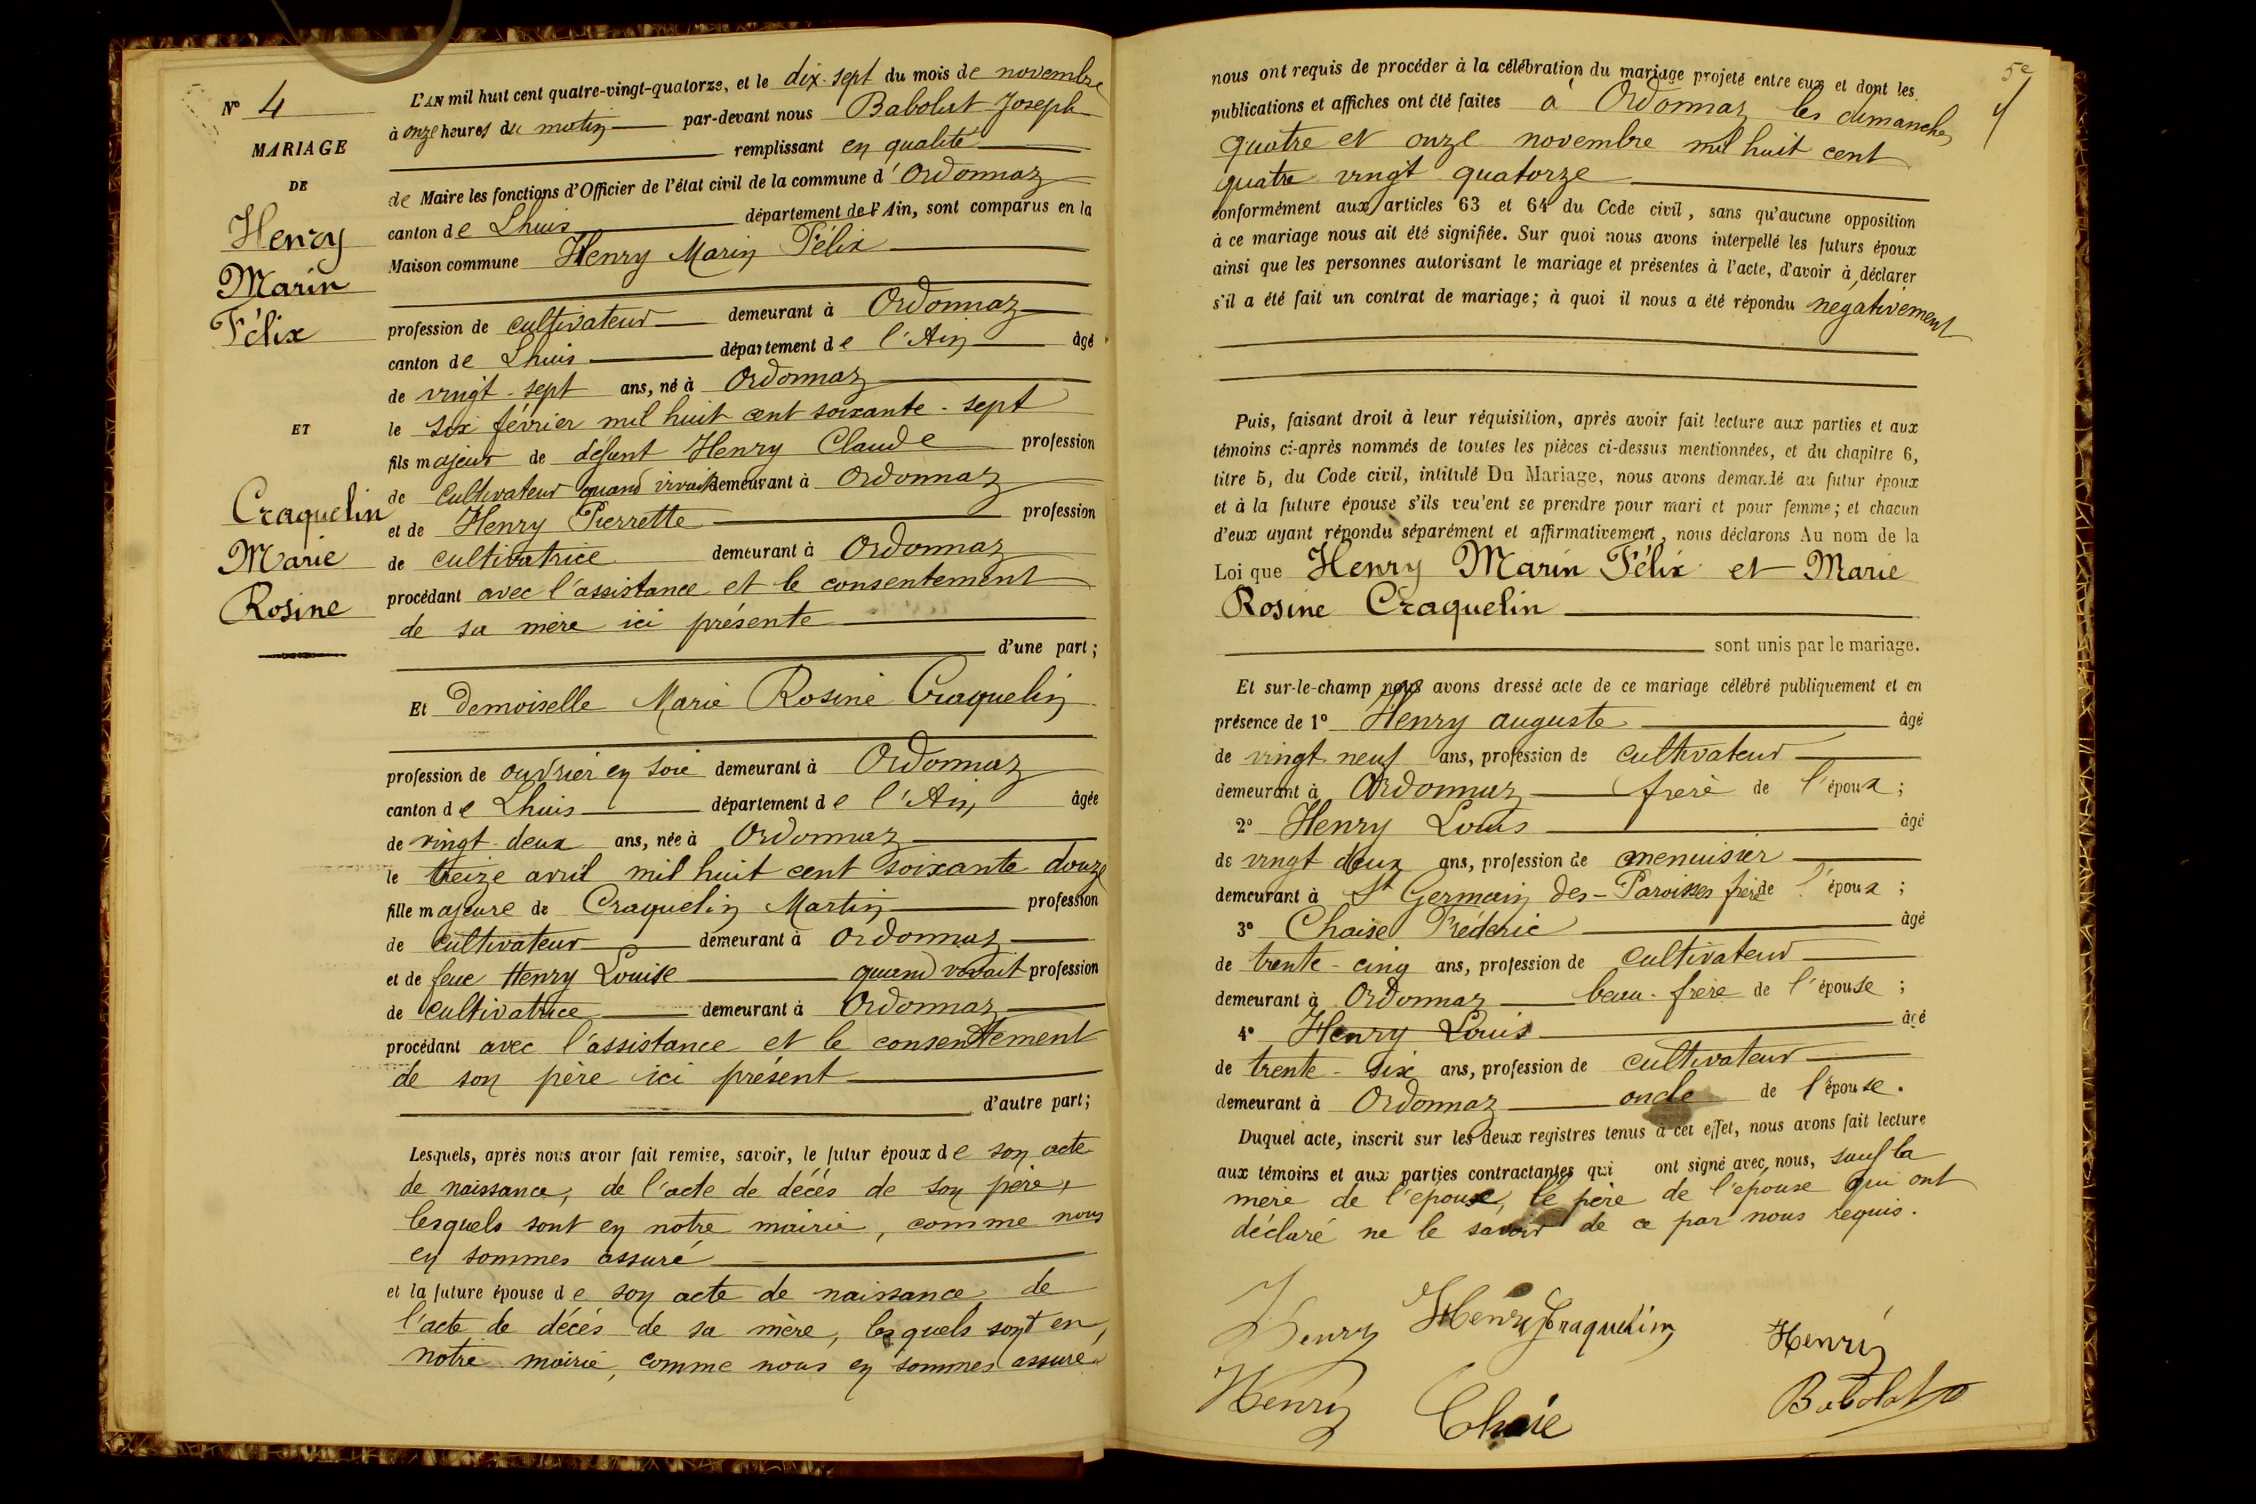 N° 4
MARIAGE
DE
Henry
Marin
Félix
ET
Craquelin
Marie
Rosine
L'AN mil huit cent quatre-vingt-quatorze, et le dix-sept du mois de novembre
à onze heures du matin par-devant nous Babolat Joseph
remplissant en qualité
de Maire les fonctions d'Officier de l'état civil de la commune d'Ordonnaz
canton de Lhuis département de l'Ain, sont comparus en la
Maison commune Henry Marin Félix
profession de cultivateur demeurant à Ordonnaz
canton de Lhuis département de l'Ain âgé
de vingt-sept ans, né à Ordonnaz
le six février mil huit cent soixante-sept
fils majeur de défunt Henry Claude profession
de cultivateur quand vivait demeurant à Ordonnaz
et de Henry Pierrette profession
de cultivatrice demeurant à Ordonnaz
procédant avec l'assistance et le consentement
de sa mère ici présente
d'une part;
Et demoiselle Marie Rosine Craquelin
profession de ouvrier en soie demeurant à Ordonnaz
canton de Lhuis département de l'Ain âgée
de vingt-deux ans, née à Ordonnaz
le treize avril mil huit cent soixante douze
fille majeure de Craquelin Martin profession
de cultivateur demeurant à Ordonnaz
et de feue Henry Louise quand vivait profession
de cultivatrice demeurant à Ordonnaz
procédant avec l'assistance et le consentement
de son père ici présent
d'autre part;
Lesquels, après nous avoir fait remise, savoir, le futur époux de son acte
de naissance, de l'acte de décès de son père,
lesquels sont en notre mairie, comme nous
en sommes assuré
et la future épouse de son acte de naissance de
l'acte de décès de sa mère, lesquels sont en
notre mairie, comme nous en sommes assuré
5e
nous ont requis de procéder à la célébration du mariage projeté entre eux et dont les
publications et affiches ont été faites à Ordonnaz les dimanches
quatre et onze novembre mil huit cent
quatre vingt quatorze
conformément aux articles 63 et 64 du Code civil, sans qu'aucune opposition
à ce mariage nous ait été signifiée. Sur quoi nous avons interpellé les futurs époux
ainsi que les personnes autorisant le mariage et présentes à l'acte, d'avoir à déclarer
s'il a été fait un contrat de mariage; à quoi il nous a été répondu négativement
Puis, faisant droit à leur réquisition, après avoir fait lecture aux parties et aux
témoins ci-après nommés de toutes les pièces ci-dessus mentionnées, et du chapitre 6,
titre 5, du Code civil, intitulé Du Mariage, nous avons demandé au futur époux
et à la future épouse s'ils veulent se prendre pour mari et pour femme; et chacun
d'eux ayant répondu séparément et affirmativement, nous déclarons Au nom de la
Loi que Henry Marin Félix et Marie
Rosine Craquelin
sont unis par le mariage.
Et sur-le-champ nous avons dressé acte de ce mariage célébré publiquement et en
présence de 1° Henry auguste âgé
de vingt neuf ans, profession de cultivateur
demeurant à Ordonnaz frère de l'époux;
2° Henry Louis âgé
de vingt deux ans, profession de menuisier
demeurant à St Germain des-Paroisses frère de l'époux;
3° Chaise Frédéric âgé
de trente-cinq ans, profession de cultivateur
demeurant à Ordonnaz beau-frère de l'épouse;
4° Henry Louis âgé
de trente-six ans, profession de cultivateur
demeurant à Ordonnaz oncle de l'épouse.
Duquel acte, inscrit sur les deux registres tenus à cet effet, nous avons fait lecture
aux témoins et aux parties contractantes qui ont signé avec nous, sauf la
mère de l'époux, le père de l'épouse qui ont
déclaré ne le savoir de ce par nous requis.
Henry Henry Craquelin Henry
Henry Chaise Babolat